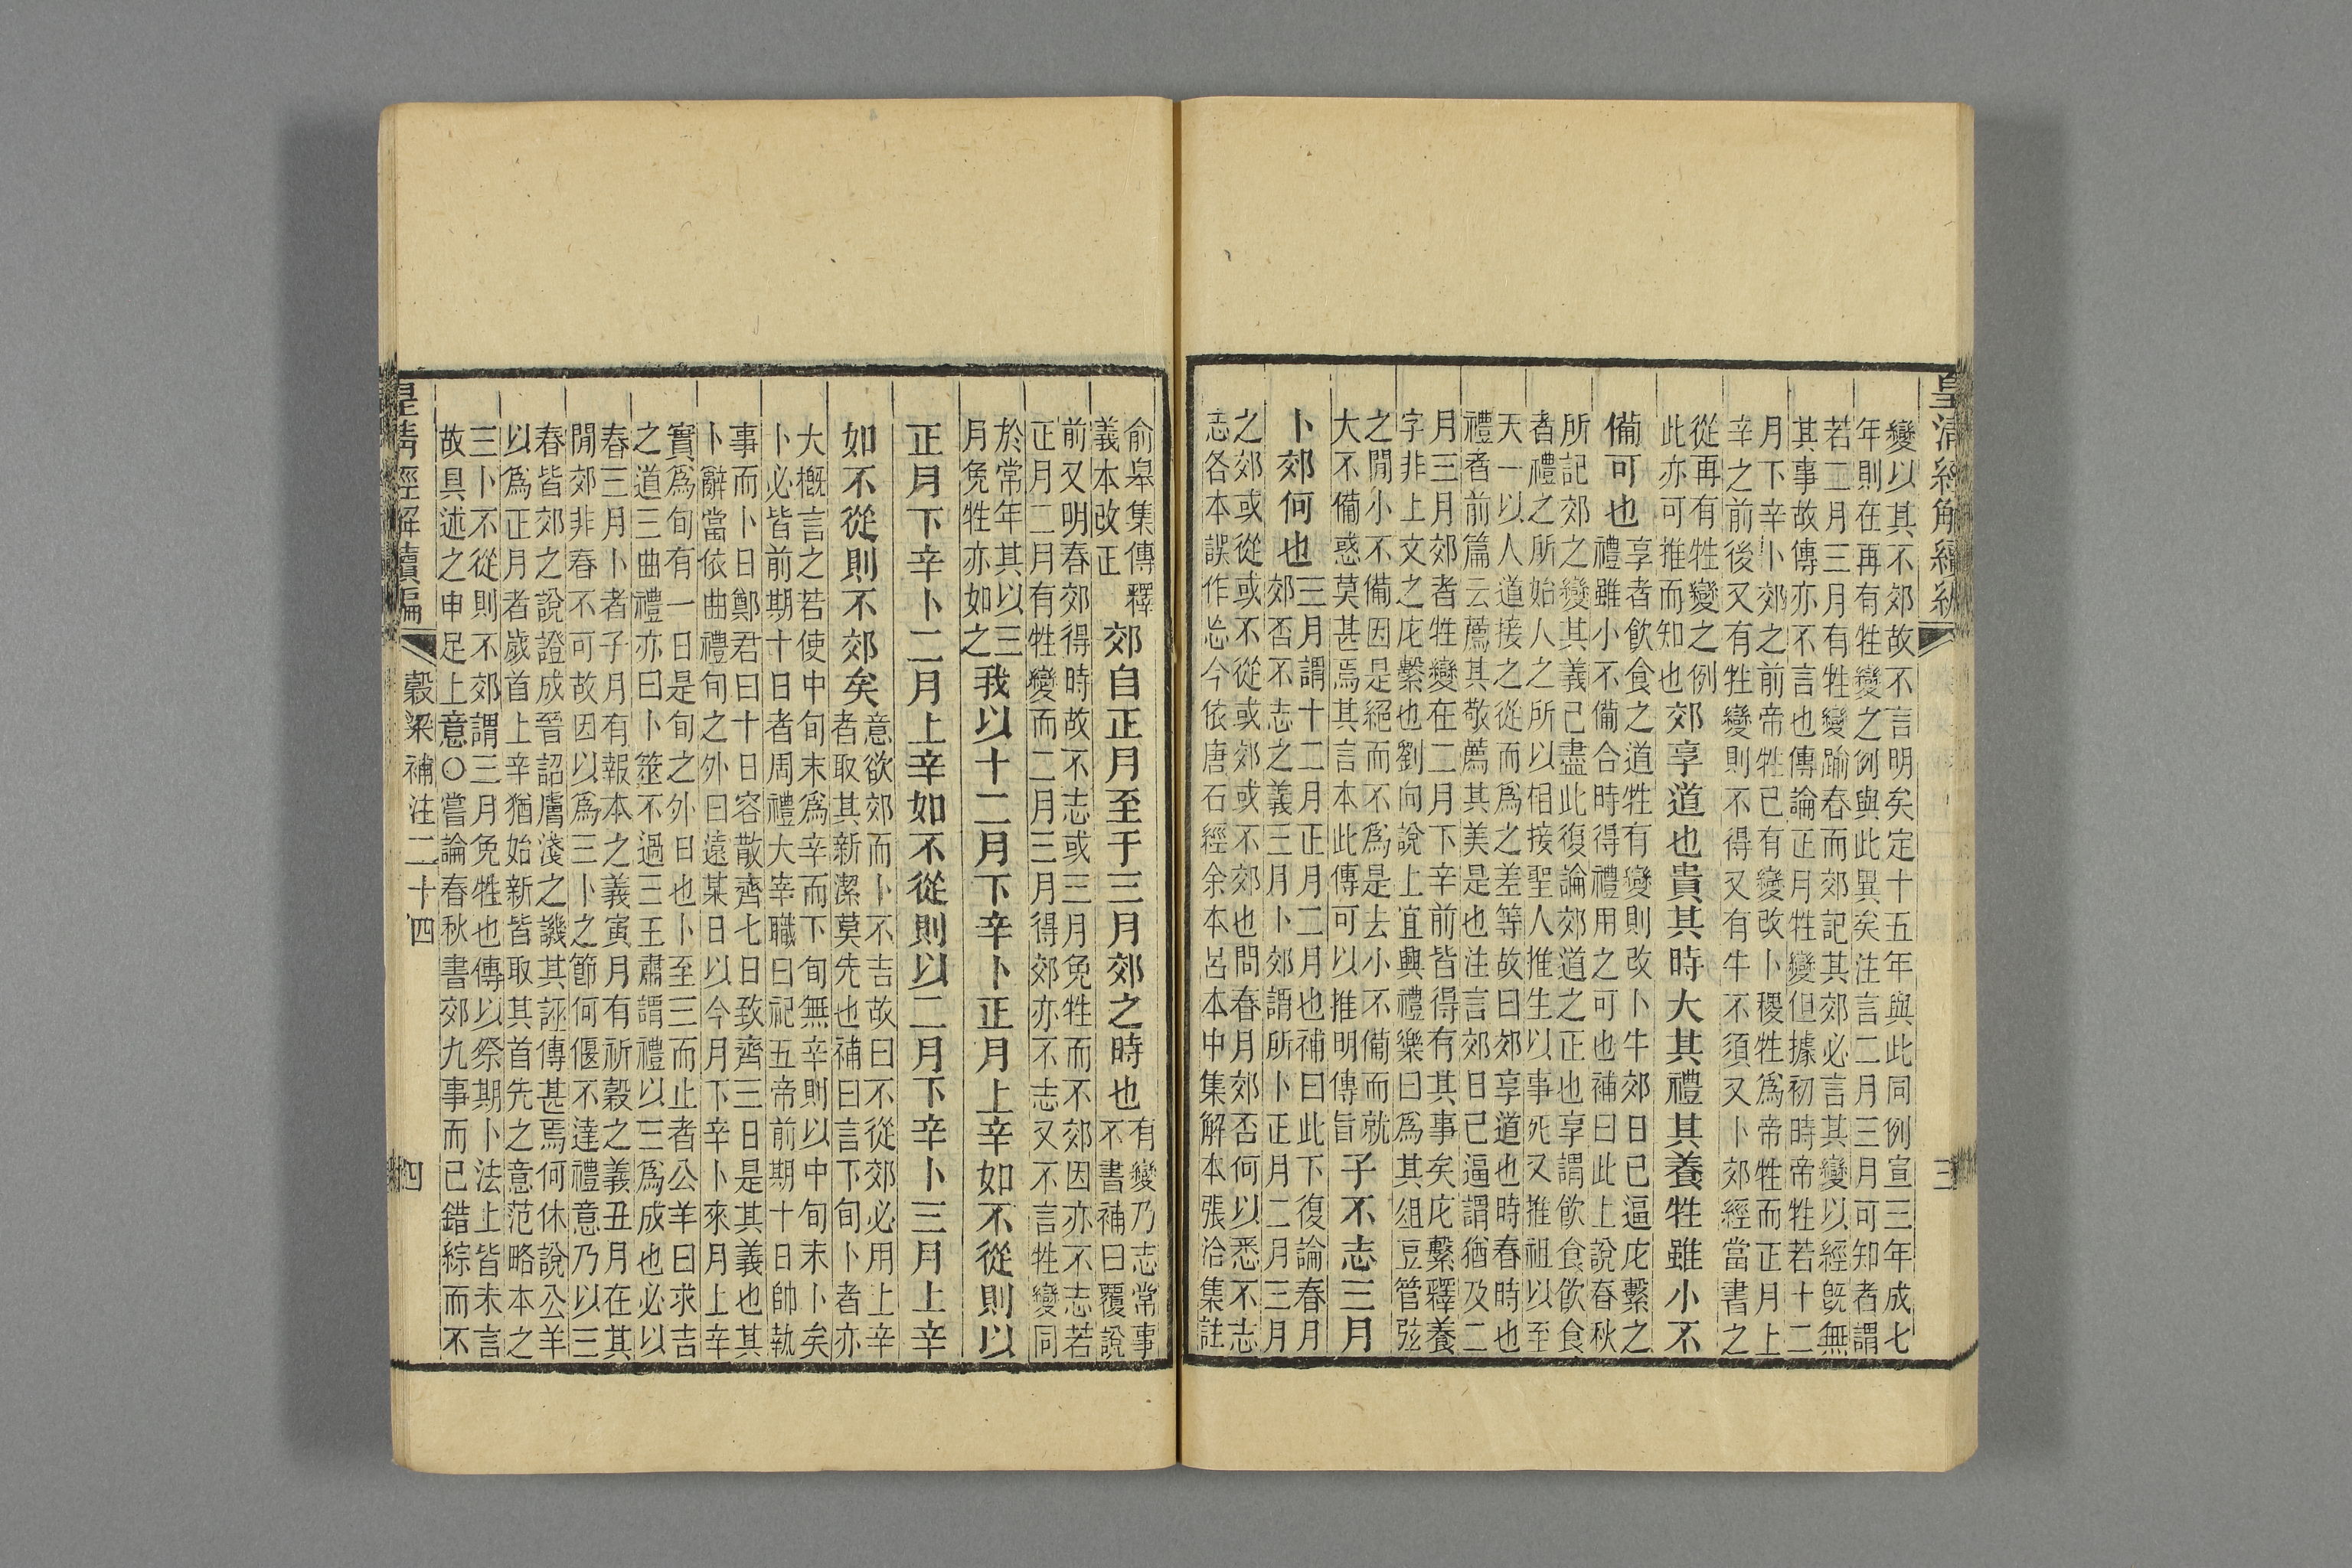 皇清經解續編
三
變以其不郊故不言明矣定十五年與此同例宣三年成七
年則在再有牲變之例與此異矣注言二月三月可知者謂
若二月三月有牲變踰春而郊記其郊必言其變以經旣無
其事故傳亦不言也傳論正月牲變但據初時帝牲若十二
月下辛卜郊之前帝牲已有變改卜稷牲爲帝牲而正月上
辛之前後又有牲變則不得又有牛不須又卜郊經當書之
從再有牲變之例
此亦可推而知也
郊享道也貴其時大其禮其養牲雖小不
備可也
享者飮食之道牲有變則改卜牛郊日已逼庀繫之
禮雖小不備合時得禮用之可也補曰此上說春秋
所記郊之變其義已盡此復論郊道之正也享謂飮食飮食
者禮之所始人之所以相接聖人推生以事死又推祖以至
天一以人道接之從而爲之差等故曰郊享道也時春時也
禮者前篇云薦其敬薦其美是也注言郊日已逼謂猶及二
月三月郊者牲變在二月下辛前皆得有其事矣庀繫釋養
字非上文之庀繫也劉向說上宜興禮樂曰爲其俎豆管弦
之閒小不備因是絕而不爲是去小不備而就
大不備惑莫甚焉其言本此傳可以推明傳旨
子不志三月
卜郊何也
三月謂十二月正月二月也補曰此下復論春月
郊否不志之義三月卜郊謂所卜正月二月三月
之郊或從或不從或郊或不郊也問春月郊否何以悉不志
志各本誤作忿今依唐石經余本呂本中集解本張洽集註
俞皋集傳釋
義本改正
郊自正月至于三月郊之時也
有變乃志常事
不書補曰覆說
前又明春郊得時故不志或三月免牲而不郊因亦不志若
正月二月有牲變而二月三月得郊亦不志又不言牲變同
於常年其以三
月免牲亦如之
我以十二月下辛卜正月上辛如不從則以
正月下辛卜二月上辛如不從則以二月下辛卜三月上辛
如不從則不郊矣
意欲郊而卜不吉故曰不從郊必用上辛
者取其新潔莫先也補曰言下旬卜者亦
大槪言之若使中旬末爲辛而下旬無辛則以中旬末卜矣
卜必皆前期十日者周禮大宰職曰祀五帝前期十日帥執
事而卜日鄭君曰十日容散齊七日致齊三日是其義也其
卜辭當依曲禮旬之外曰遠某日以今月下辛卜來月上辛
實爲旬有一日是旬之外日也卜至三而止者公羊曰求吉
之道三曲禮亦曰卜筮不過三王肅謂禮以三爲成也必以
春三月卜者子月有報本之義寅月有祈穀之義丑月在其
閒郊非春不可故因以爲三卜之節何偃不達禮意乃以三
春皆郊之說證成晉詔膚淺之譏其誣傳甚焉何休說公羊
以爲正月者歲首上辛猶始新皆取其首先之意范略本之
三卜不從則不郊謂三月免牲也傳以祭期卜法上皆未言
故具述之申足上意〇嘗論春秋書郊九事而已錯綜而不
皇淸經解續編
穀梁補注二十四
四